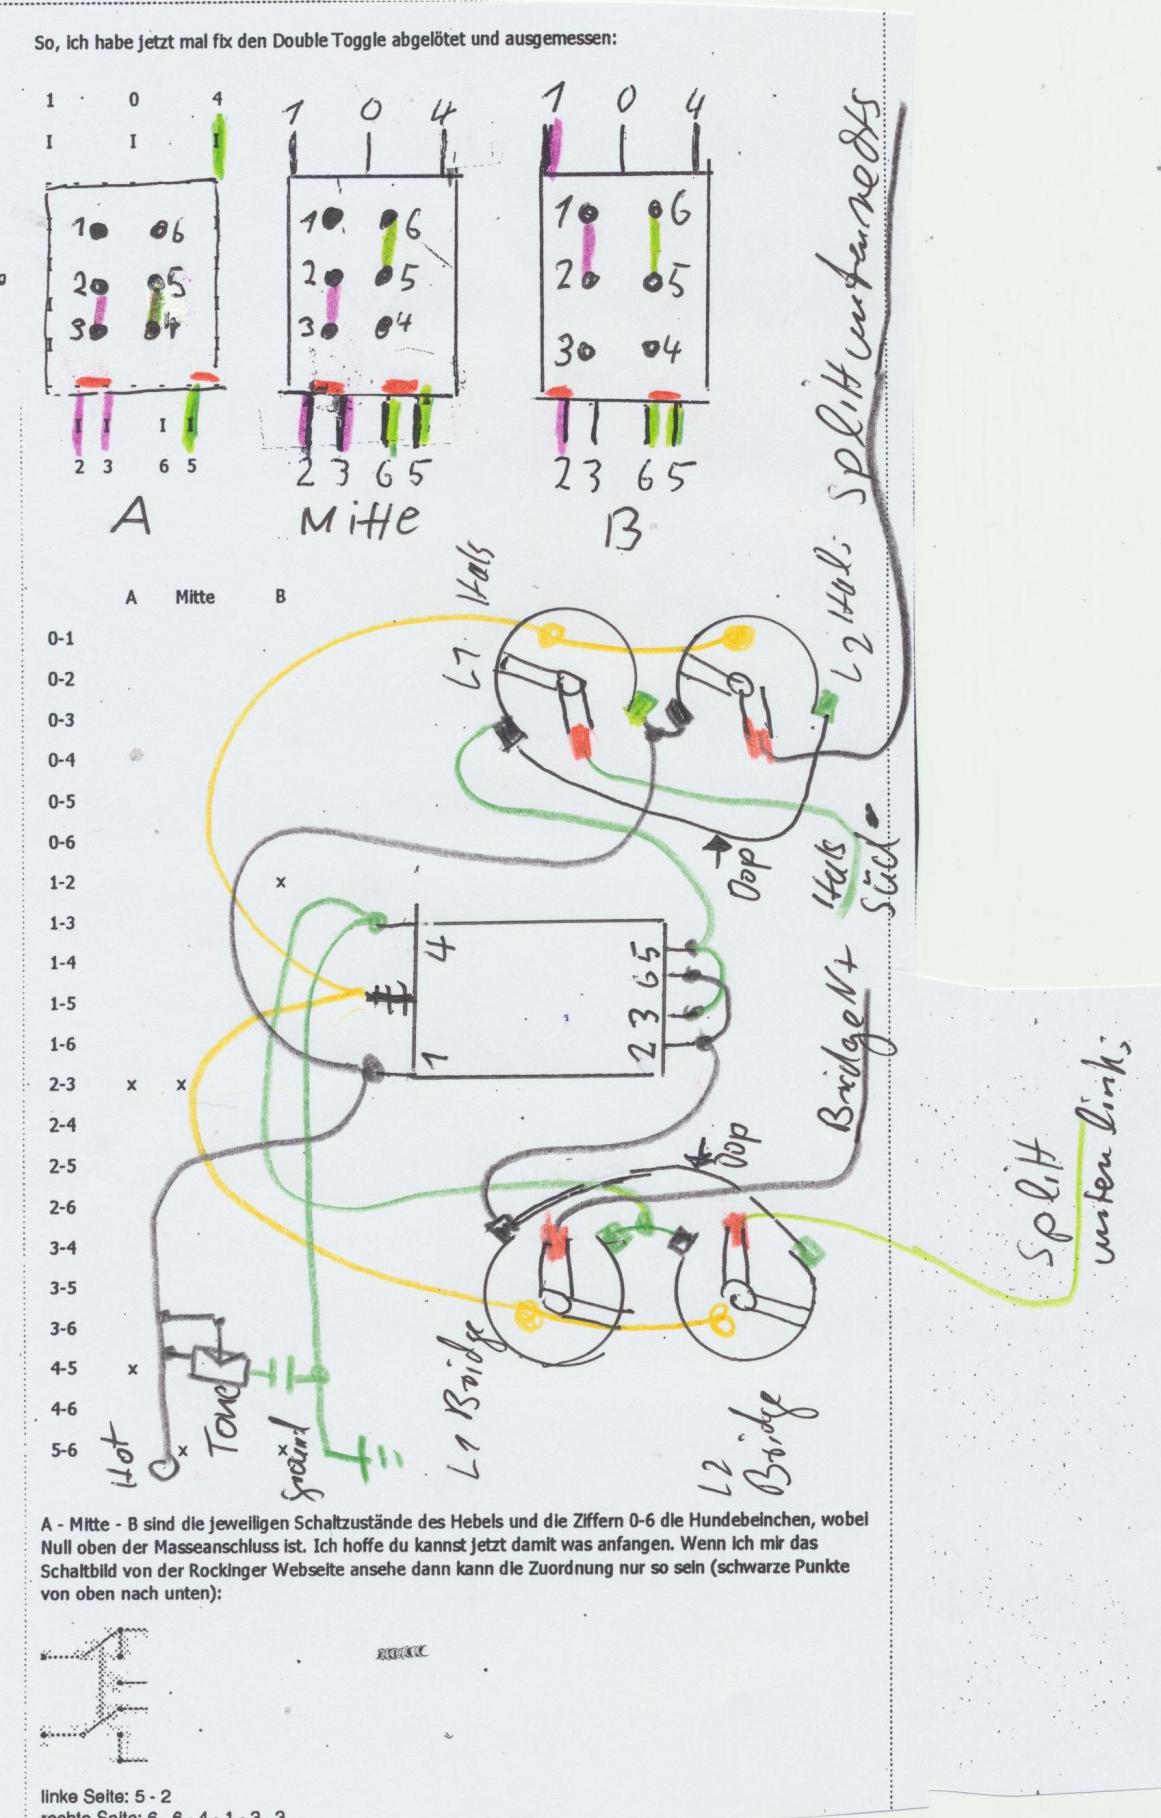 So, ich habe jetzt mal fix den Double Toggle abgelötet und ausgemessen:
1 0 4
1 0 4
1 0 4
I I I
1 6
2 5
3 4
1 6
2 5
3 4
1 6
2 5
3 4
I I I I
2 3 6 5
2 3 6 5
2 3 6 5
A
Mitte
B
Split unten rechts
A Mitte B
L1 Hals
L2 Hals
0-1
0-2
0-3
0-4
0-5
0-6
1-2 x
1-3
1-4
1-5
1-6
2-3 x x
2-4
2-5
2-6
3-4
3-5
3-6
4-5 x
4-6
5-6 x x
Oop
Hals
Süd
4
1
5
6
3
2
Bridge N+
Oop
Split
unten links
L1 Bridge
L2
Bridge
Hot
Tone
ground
A - Mitte - B sind die jeweiligen Schaltzustände des Hebels und die Ziffern 0-6 die Hundebeinchen, wobei
Null oben der Masseanschluss ist. Ich hoffe du kannst jetzt damit was anfangen. Wenn ich mir das
Schaltbild von der Rockinger Webseite ansehe dann kann die Zuordnung nur so sein (schwarze Punkte
von oben nach unten):
linke Seite: 5 - 2
rechte Seite: 6 - 6 - 4 - 1 - 3 - 3